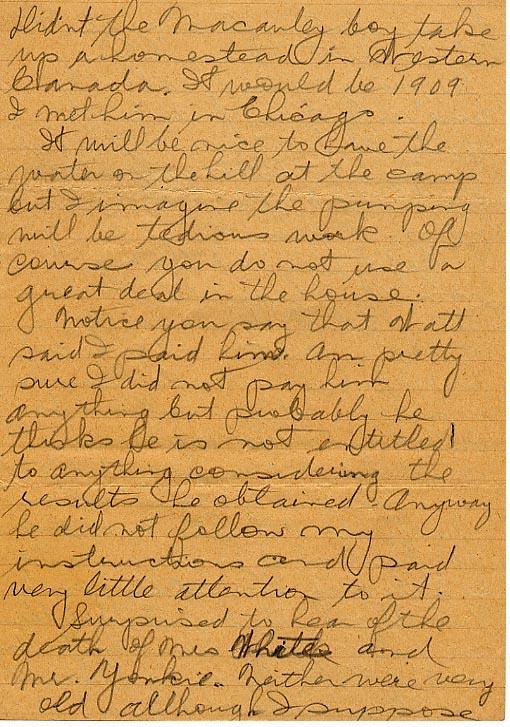 Didnt the Macauley boy take
up a homestead in Western
Canada. It would be 1909
I met him in Chicago.
It will be nice to have the
water on the hill at the camp
but I imagine the pumping
will be tedious work Of
course you do not use a
great deal in the house.
Notice you say that Watt
said I paid him. Am pretty
sure I did not pay him
anything but probably he
thinks he is not entitled
to anything considering the
results he obtained. Anyway
he did not follow my
instructions and paid
very little attention to it.
Surprised to hear of the
death of Mrs White and
Mr. Yonkie. Neither were very
old although I suppose